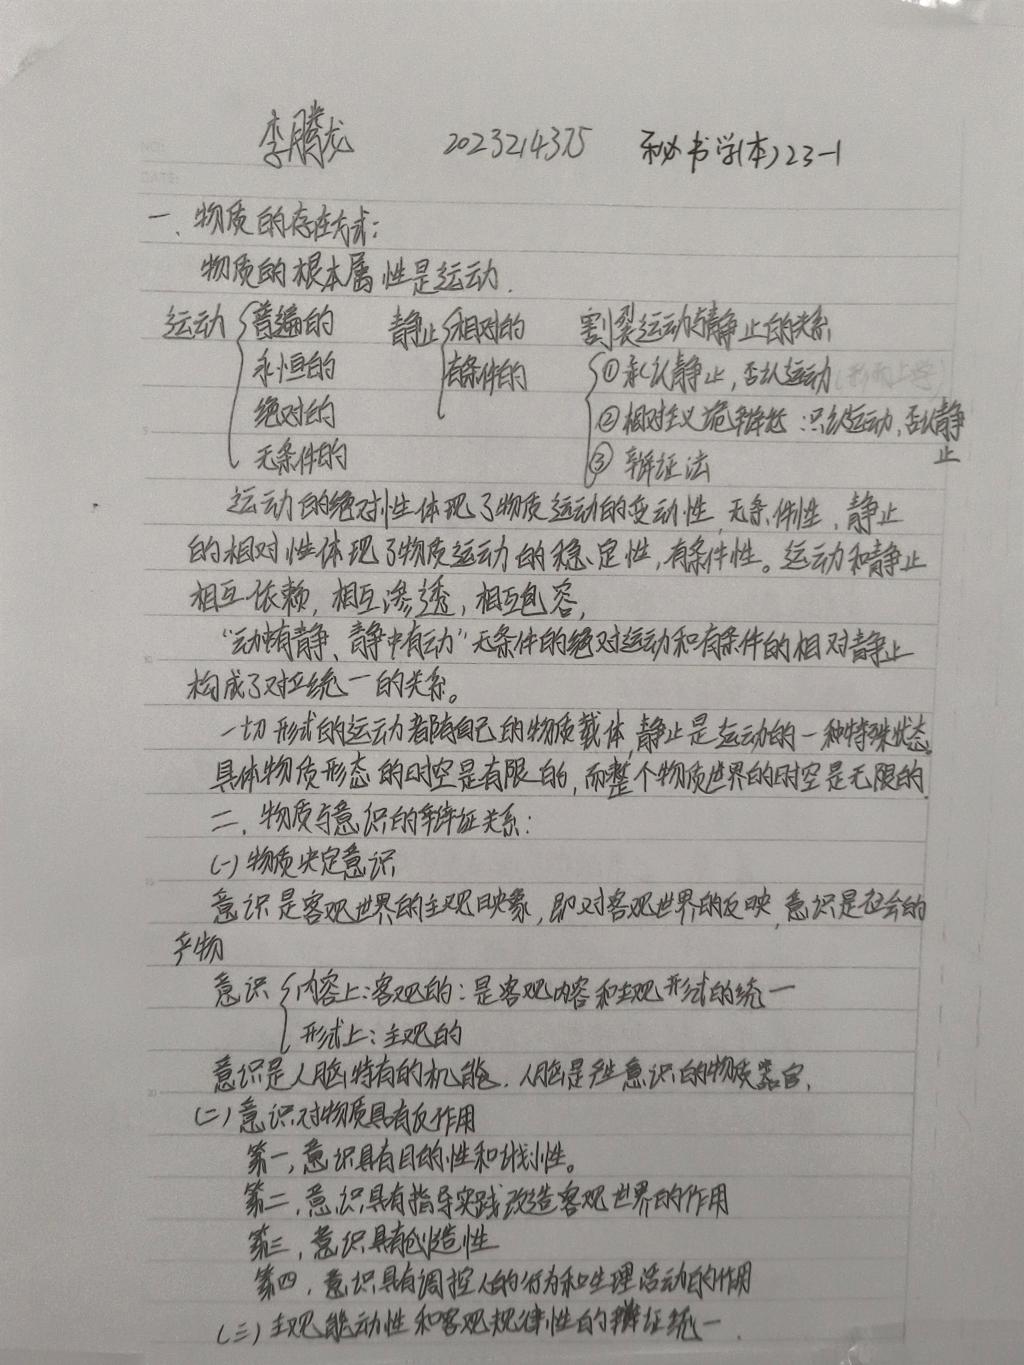 李腾龙 2023214375 秘书学(本)23-1
一、物质的存在方式:
物质的根本属性是运动.
运动 普遍的 静止 相对的 割裂运动与静止的关系
永恒的 有条件的 ①承认静止,否认运动(形而上学)
绝对的 ②相对主义诡辩论:只认运动,否认静
无条件的 ③辩证法 止
运动的绝对性体现了物质运动的变动性,无条件性,静止
的相对性体现了物质运动的稳定性,有条件性。运动和静止
相互依赖,相互渗透,相互包容,
“动中有静、静中有动”无条件的绝对运动和有条件的相对静止
构成了对立统一的关系。
一切形式的运动都有自己的物质载体,静止是运动的一种特殊状态。
具体物质形态的时空是有限的,而整个物质世界的时空是无限的.
二、物质与意识的辩证关系:
(一)物质决定意识
意识是客观世界的主观映象,即对客观世界的反映,意识是社会的
产物
意识 内容上:客观的:是客观内容和主观形式的统一
形式上:主观的
意识是人脑特有的机能.人脑是产生意识的物质器官.
(二)意识对物质具有反作用
第一,意识具有目的性和计划性。
第二,意识具有指导实践改造客观世界的作用
第三,意识具有创造性
第四,意识具有调控人的行为和生理活动的作用
(三)主观能动性和客观规律性的辩证统一.